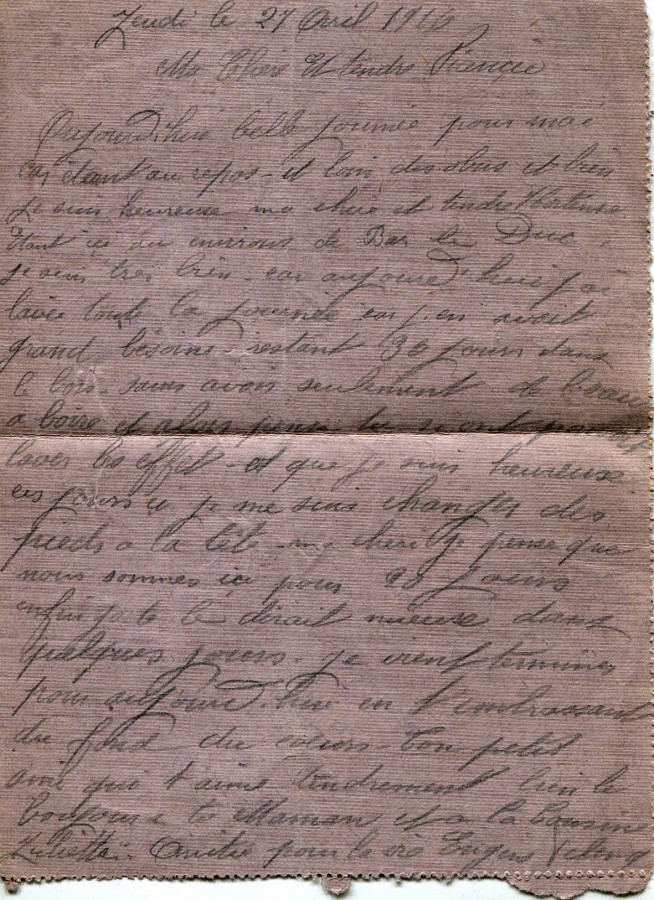 Jeudi le 27 Avril 1916
Ma Chère Et tendre Fiancée
Aujourd'hui belle journée pour moi
car étant au repos - et loin des obus et bien
je suis heureuse ma chère et tendre Hortense
étant ici au environs de Bar le Duc,
je suis très bien - car aujourd'hui j'ai
lavée toute la journée car j'en avait
grand bésoine - restant 30 jours dans
le bois - sans avoir seulement de l'eau
a boire et alors pense tu si ont
laver les effet - et que je suis heureuse
ces jours ci je me suis changer des
pieds a la tête - ma cheri je pense que
nous sommes ici pour 20 jours
enfin je te le dirait mieuse dans
quelques jours - je vient terminer
pour aujourd'hui en t'embrassant
du fond du coeurs - ton petit
ami qui t'aime tendrement bien le
bonjours a ta Maman et a la Cousine
Juliette. Amitié pour la vie Eugène